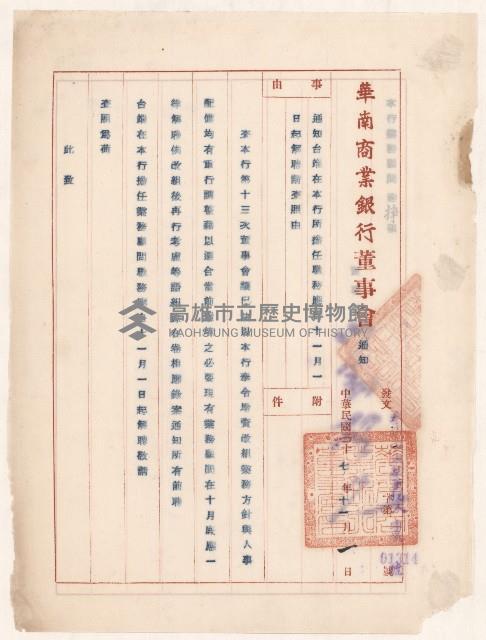 華南商業銀行董事會
通知
發文
字第
號
01314
中華民國三十七年十一月一日
事由
通知台端在本行所擔任職務應十一月一
日起解聘請查照由
附件
查本行第十三次董事會議
本行奉令增資改組業務方針與人事
配備均有重行調整
以適合當前
之必要現有業務顧問在十月底應一
律解聘俟改組後再行考慮等語紀錄在卷相應錄案通知所有前聘
台端在本行擔任業務顧問職務
一月一日起解聘敬請
查照為荷
此致
本行業務顧問
高雄市立歷史博物館
KAOHSIUNG MUSEUM OF HISTORY